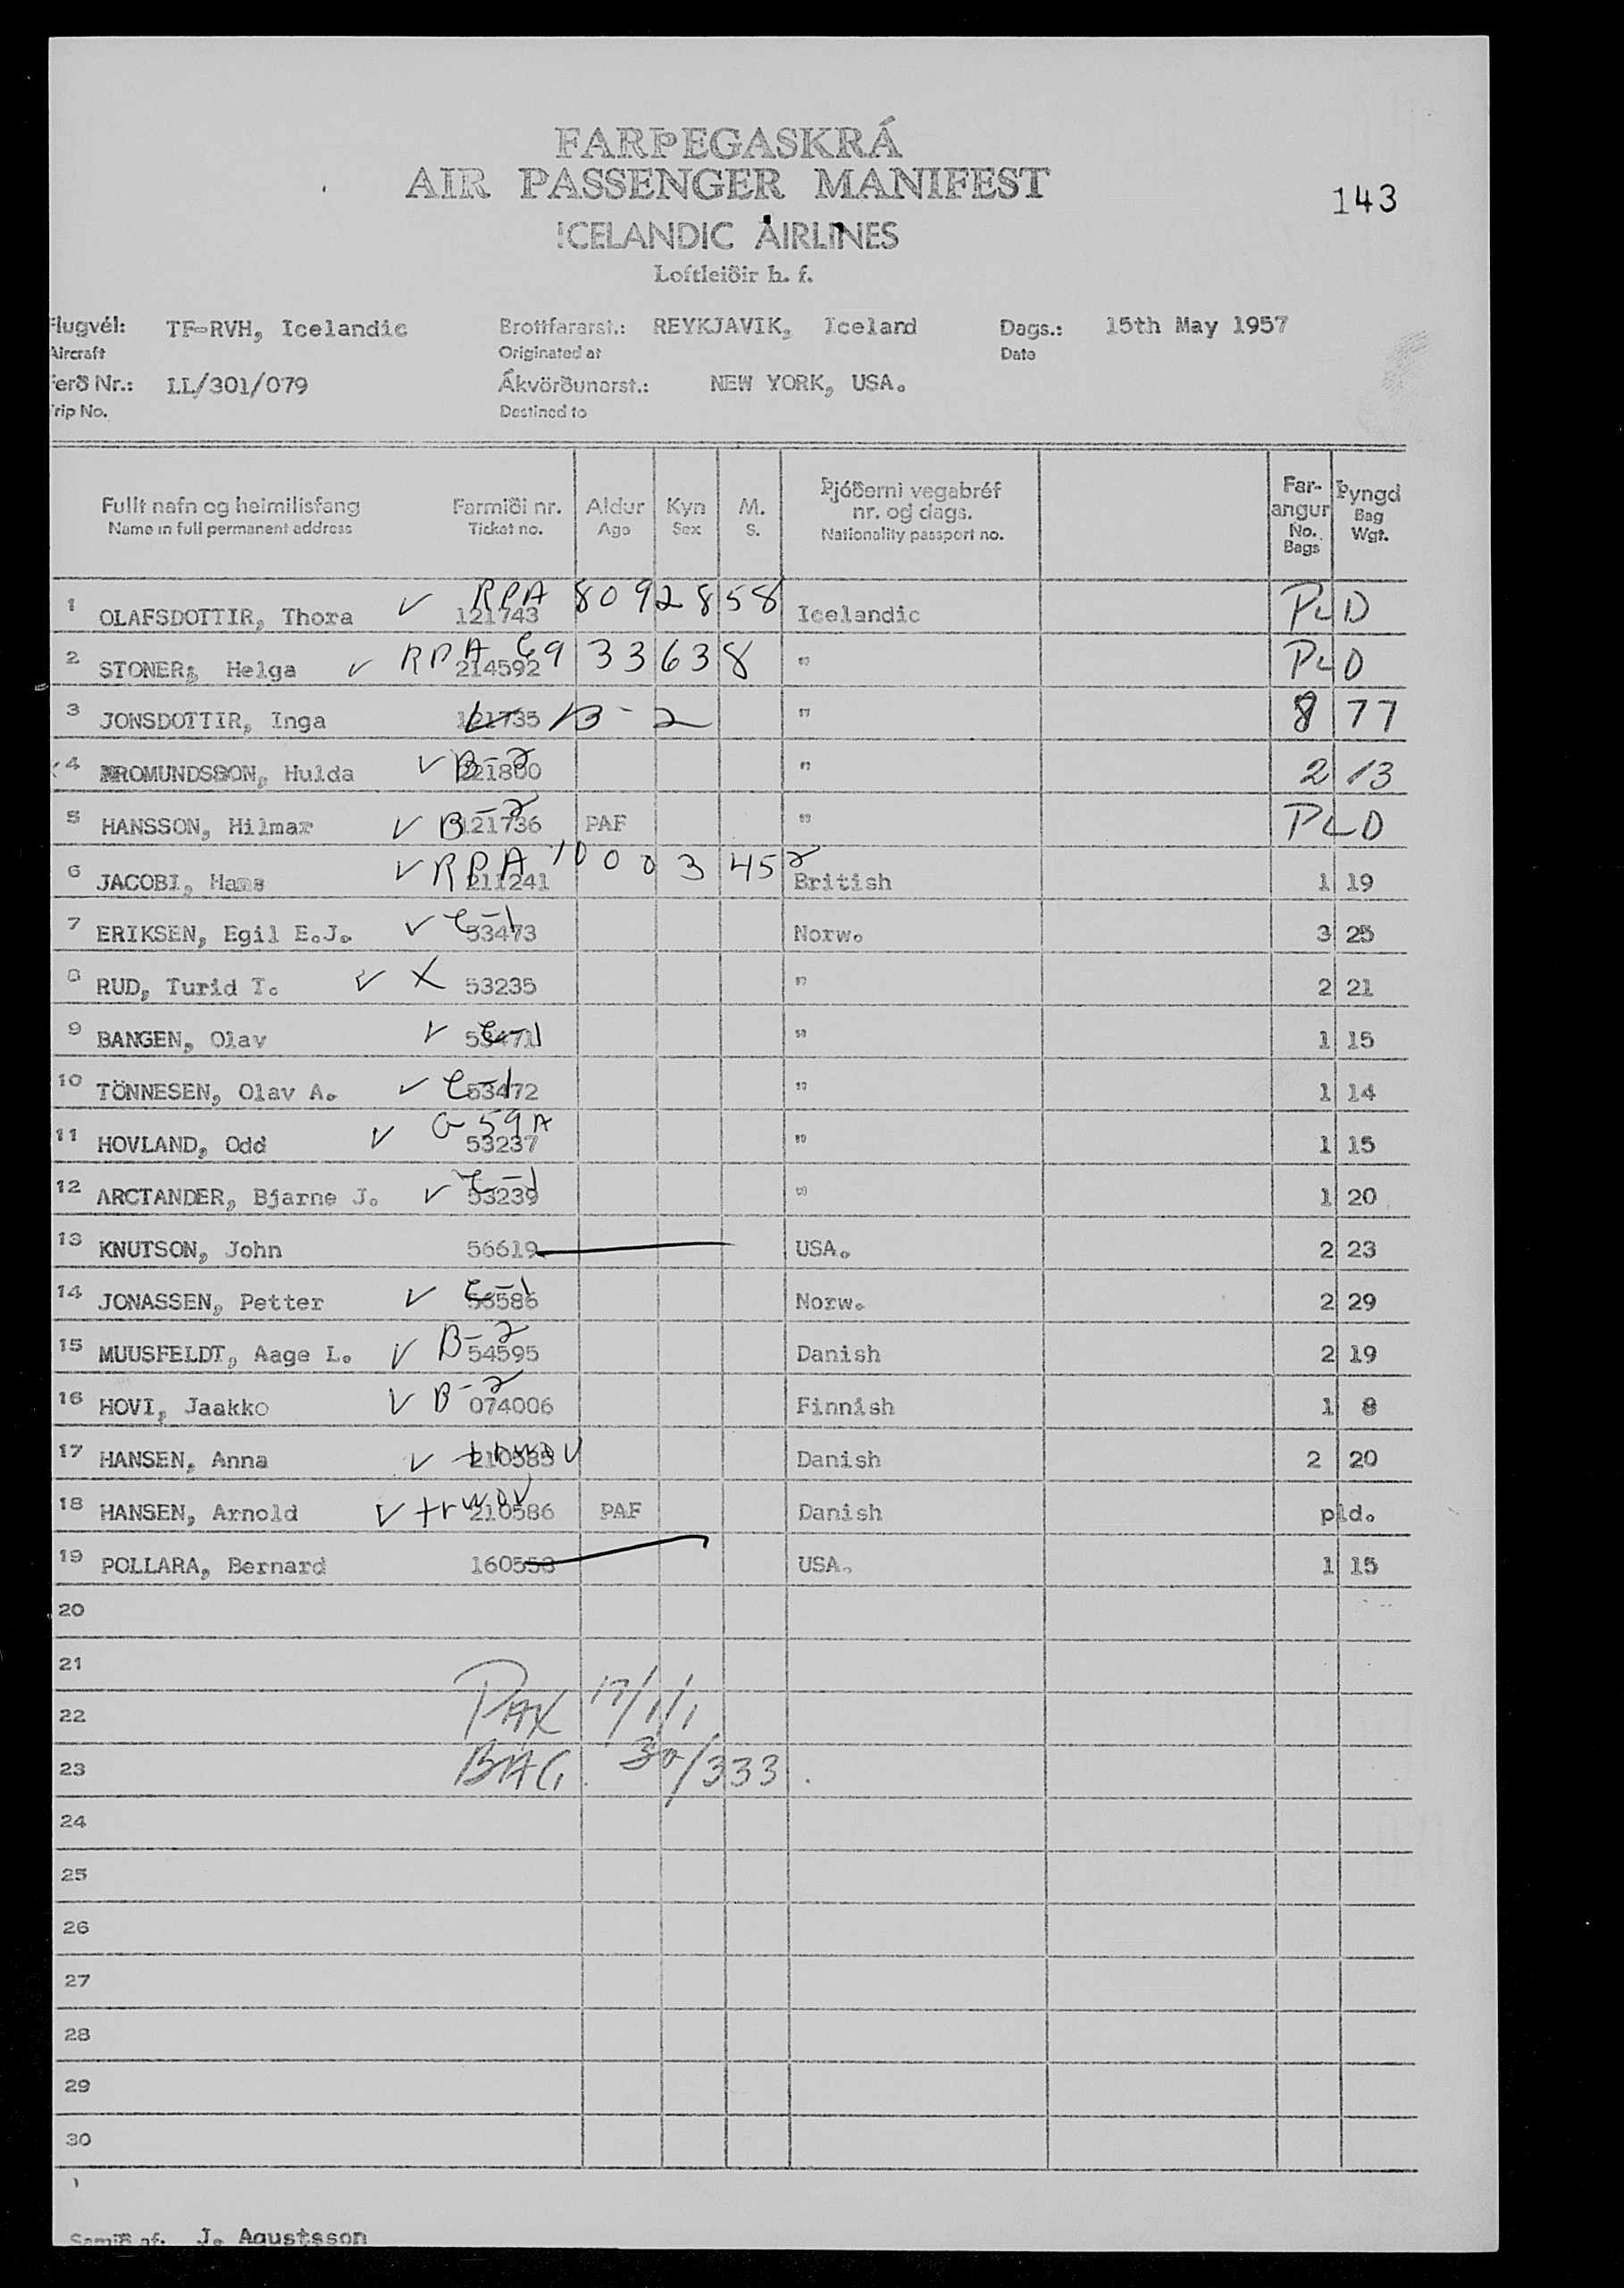 FARÞEGASKRÁ
AIR PASSENGER MANIFEST
143
ICELANDIC AIRLINES
Loftleiðir h. f.
Flugvél: TF-RVH, Icelandic Brottfararst.: REYKJAVIK, Iceland Dags.: 15th May 1957
Aircraft Originated at Date
Ferð Nr.: LL/301/079 Ákvörðunarst.: NEW YORK, USA.
Trip No. Destined to
Fullt nafn og heimilisfang Farmiði nr. Aldur Kyn M. Þjóðerni vegabréf nr. og dags. Far-angur Þyngd
Name in full permanent address Ticket no. Age Sex S. Nationality passport no. No. Bags Bag Wgt.
1 OLAFSDOTTIR, Thora ✓ RPA 8092858 121743 Icelandic PLD
2 STONER, Helga ✓ RPA C9 33638 214592 " PLD
3 JONSDOTTIR, Inga 121735 B-2 " 8 77
4 HROMUNDSSON, Hulda ✓ B-2 221800 " 2 13
5 HANSSON, Hilmar ✓ B-2 121736 PAF " PLD
6 JACOBI, Hans ✓ RPA 10003452 211241 British 1 19
7 ERIKSEN, Egil E.J. ✓ C-1 53473 Norw. 3 25
8 RUD, Turid T. ✓ X 53235 " 2 21
9 BANGEN, Olav ✓ C-1 53471 " 1 15
10 TÖNNESEN, Olav A. ✓ C-1 53472 " 1 14
11 HOVLAND, Odd ✓ G-59A 53237 " 1 15
12 ARCTANDER, Bjarne J. ✓ C-1 53239 " 1 20
13 KNUTSON, John 56619 USA. 2 23
14 JONASSEN, Petter ✓ C-1 56586 Norw. 2 29
15 MUUSFELDT, Aage L. ✓ B-2 54595 Danish 2 19
16 HOVI, Jaakko ✓ B-2 074006 Finnish 1 8
17 HANSEN, Anna ✓ trwov 210585 Danish 2 20
18 HANSEN, Arnold ✓ trwov 210586 PAF Danish pld.
19 POLLARA, Bernard 160553 USA. 1 15
20
21
22 PAX 17/1/1
23 BAG. 30/333.
24
25
26
27
28
29
30
Samið af: J. Agustsson